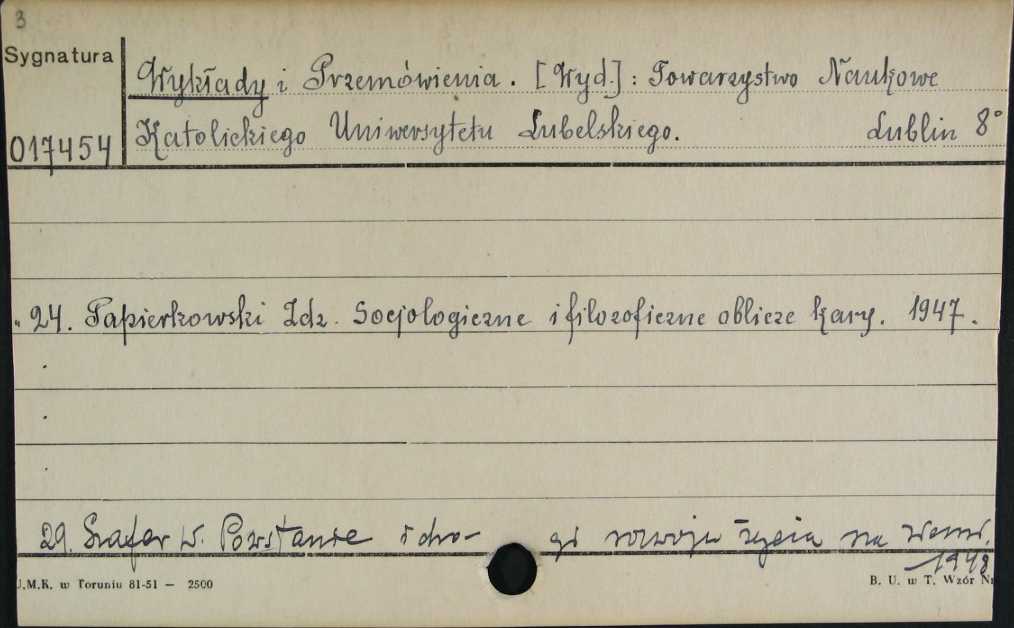 3
Sygnatura
Wykłady i Przemówienia. [Wyd.]: Towarzystwo Naukowe
017454 Katolickiego Uniwersytetu Lubelskiego. Lublin 8°
24. Papierkowski Zdz. Socjologiczne i filozoficzne oblicze kary. 1947.
29. Szafer W. Powstanie i dro- gi rozwoju życia na Ziemi.
1948
U.M.K. w Toruniu 81-51 — 2500 B. U. w T. Wzór Nr